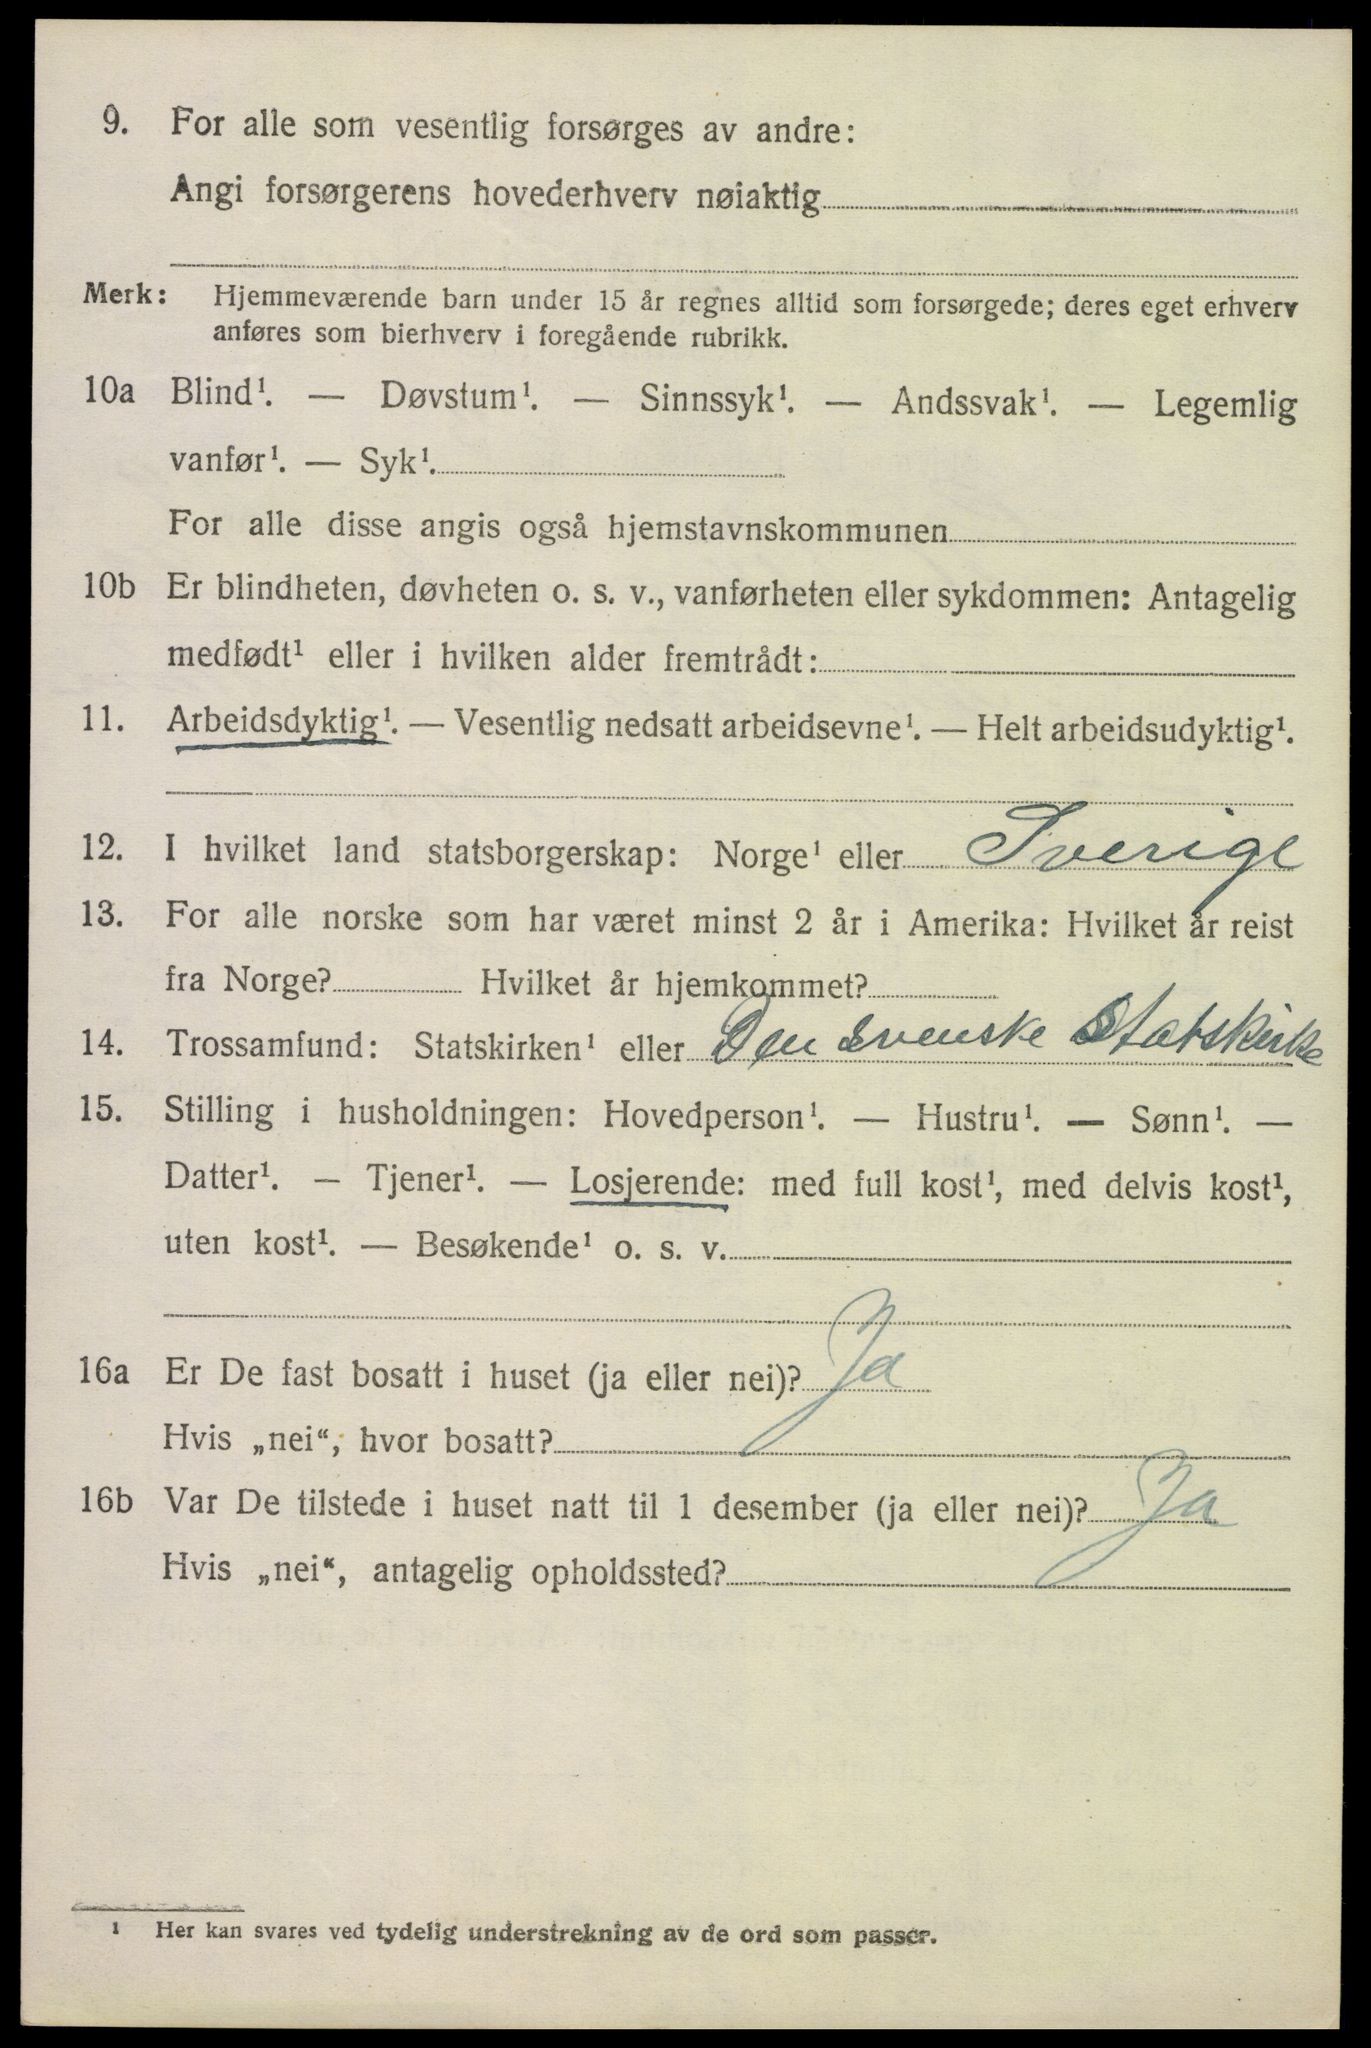 9. For alle som vesentlig forsørges av andre:
Angi forsørgerens hovederhverv nøiaktig
Merk: Hjemmeværende barn under 15 år regnes alltid som forsørgede; deres eget erhverv
anføres som bierhverv i foregående rubrikk.
10a Blind¹. — Døvstum¹. — Sinnssyk¹. — Andssvak¹. — Legemlig
vanfør¹. — Syk¹.
For alle disse angis også hjemstavnskommunen
10b Er blindheten, døvheten o. s. v., vanførheten eller sykdommen: Antagelig
medfødt¹ eller i hvilken alder fremtrådt:
11. Arbeidsdyktig¹. — Vesentlig nedsatt arbeidsevne¹. — Helt arbeidsudyktig¹.
12. I hvilket land statsborgerskap: Norge¹ eller Sverige
13. For alle norske som har været minst 2 år i Amerika: Hvilket år reist
fra Norge? Hvilket år hjemkommet?
14. Trossamfund: Statskirken¹ eller Den svenske Statskirke
15. Stilling i husholdningen: Hovedperson¹. — Hustru¹. — Sønn¹. —
Datter¹. — Tjener¹. — Losjerende: med full kost¹, med delvis kost¹,
uten kost¹. — Besøkende¹ o. s. v.
16a Er De fast bosatt i huset (ja eller nei)? Ja
Hvis „nei“, hvor bosatt?
16b Var De tilstede i huset natt til 1 desember (ja eller nei)? Ja
Hvis „nei“, antagelig opholdssted?
¹ Her kan svares ved tydelig understrekning av de ord som passer.